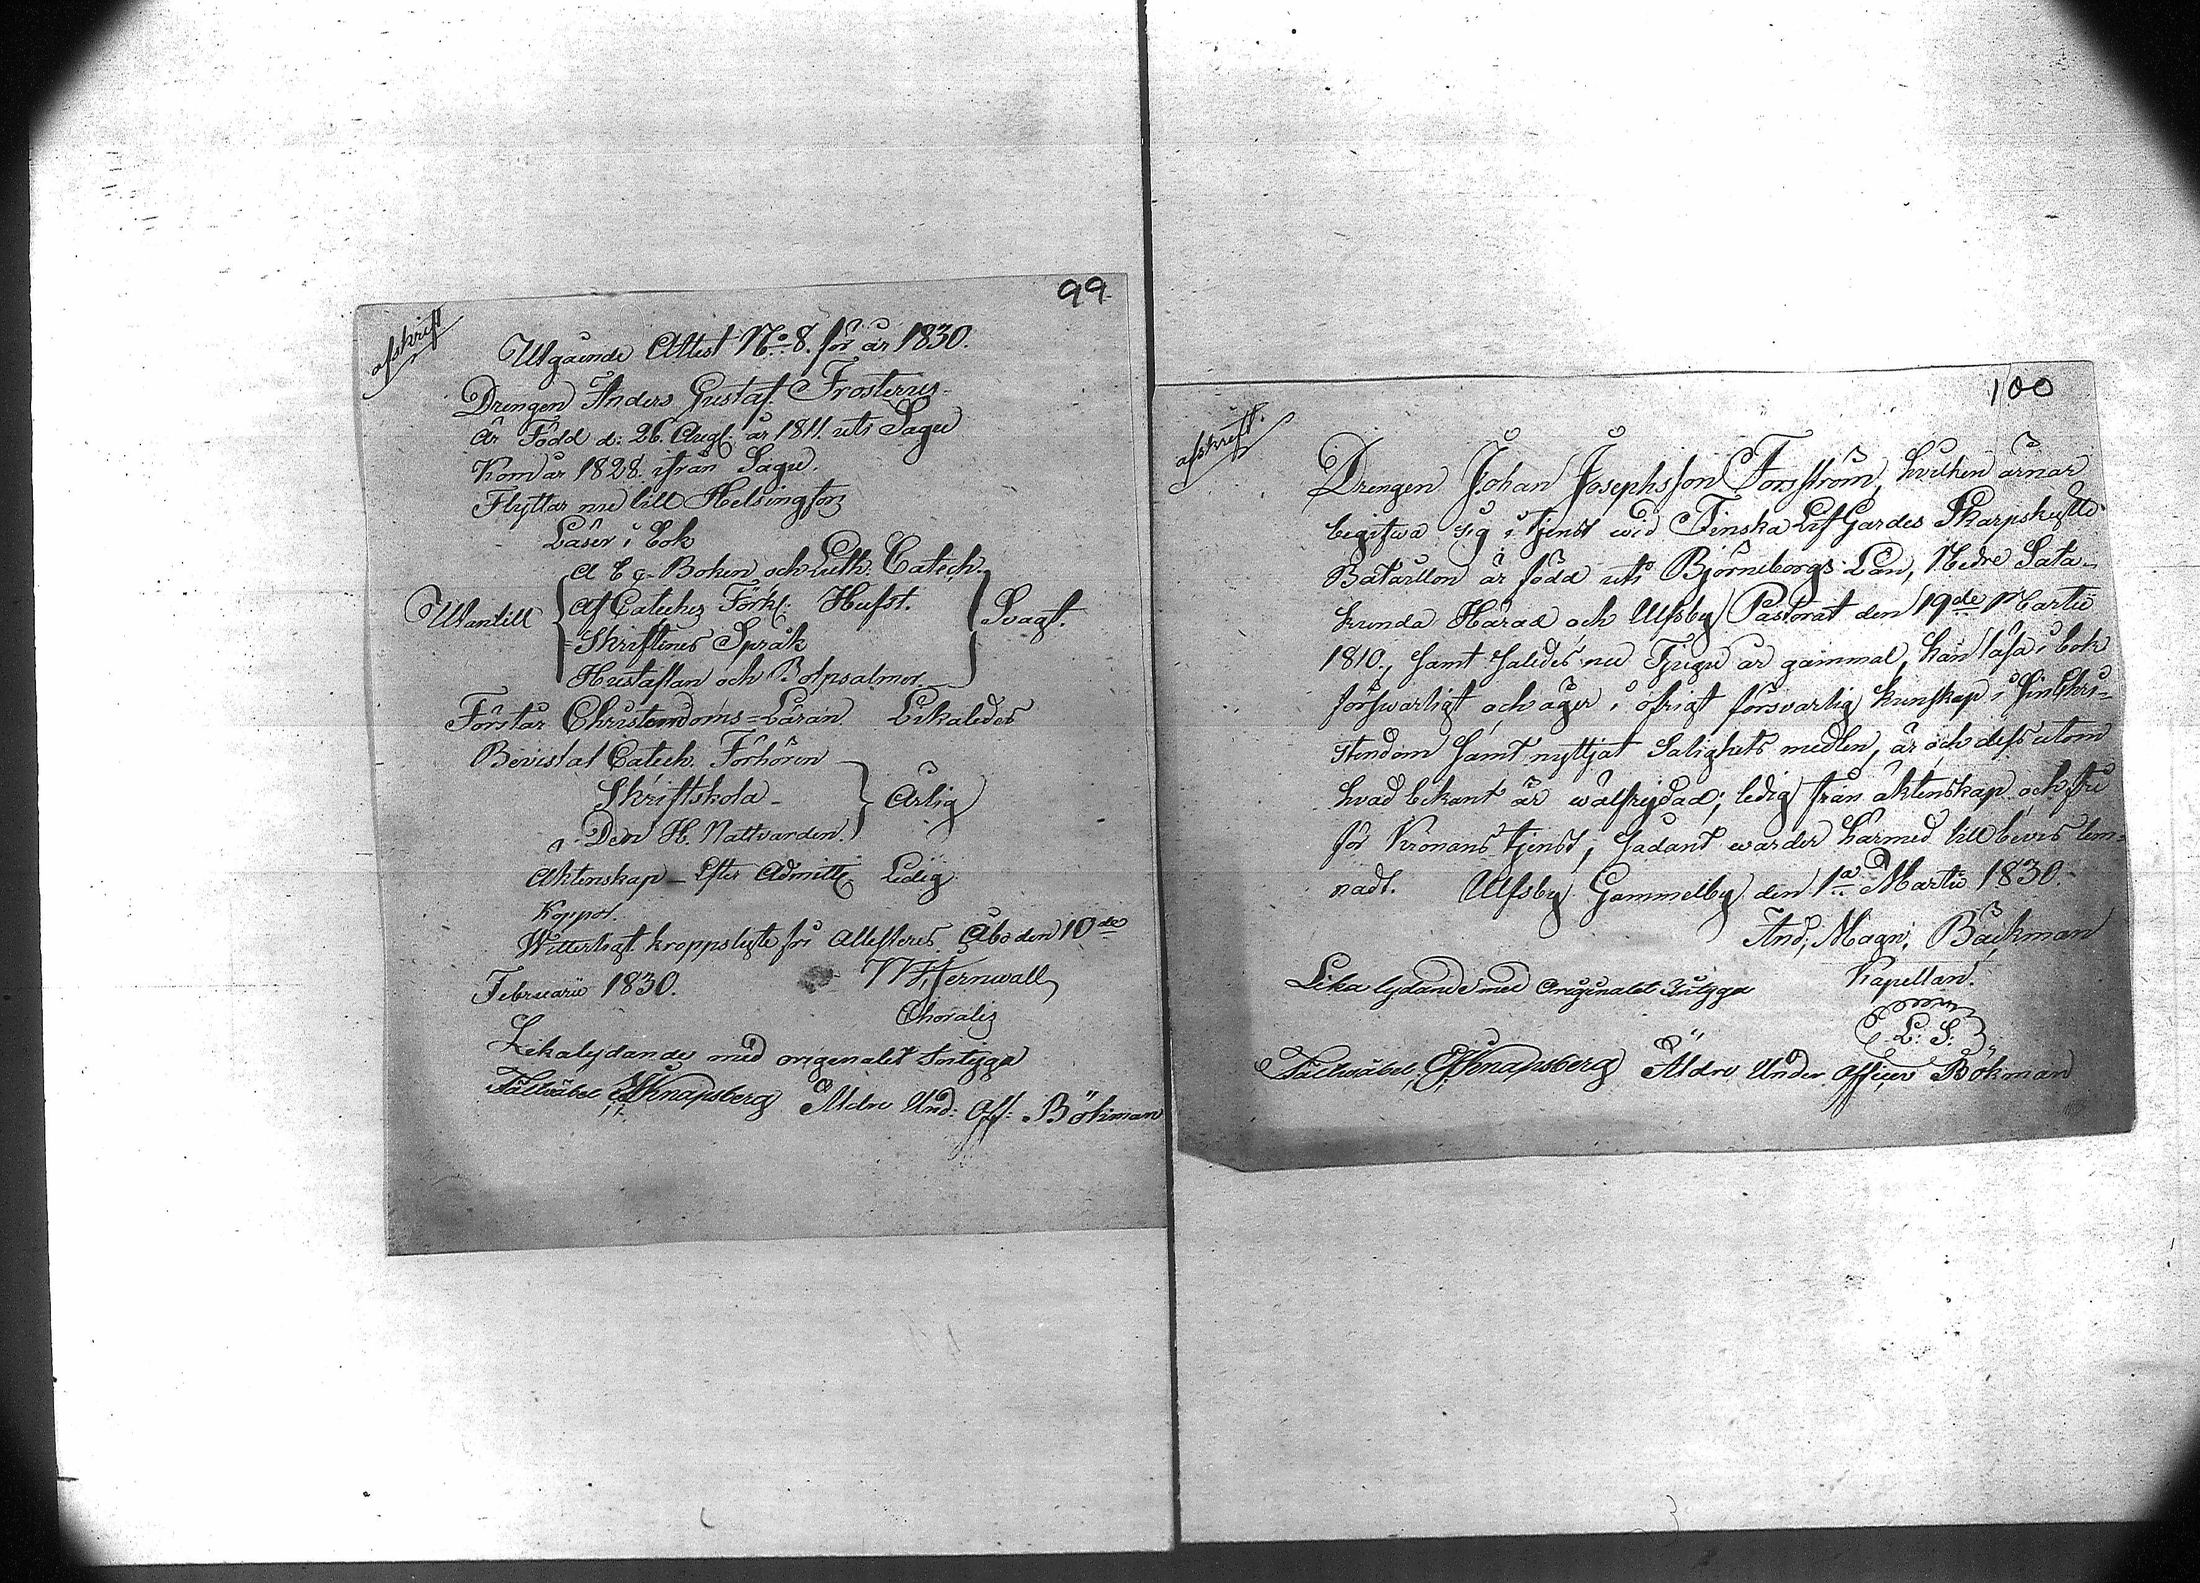 99
afskrift
Utgående Attest No 8. för år 1830.
Drengen Anders Gustaf Frosterus
är Född d: 26. Augt. år 1811. uti Sagu
Kom år 1828. ifrån Sagu.
Flyttar nu till Helsingfors
Läser i bok
A b c-Boken och Luth. Catech.
Utantill Af Catechis Förkl. Hufst. Svagt.
Skriftenes Språk
Hustaflan och Botpsalmer
Förstår Christendoms=Läran Likaledes
Bevistat Catech. Förhören
Skriftskola Årlig
Den H. Nattvarden
Äktenskap Efter Admitt. Ledig
Koppor.
Witterligt kroppslyte fri Attesteras Åbo den 10de
Februarii 1830. Hernwall
Choralis
Likalydande med originalet Intyga
Fältväbel Knapsberg Äldre Und: Off: Bökman
100
afskrift.
Drengen Johan Josephsson Forsström, hvilken ärnar
begifwa sig i tjenst wid Finska Lif Gardes Skarpskytte
Bataillon är född uti Björneborgs Län, Nedre Sata-
kunda Härad och Ulfsby Pastorat den 19de Martii
1810, samt således nu Tjugu år gammal, kan läsa i bok
försvarligt och äger i öfrigt försvarlig kunskap i sin Chri-
stendom samt nyttjat Salighets medlen, är och dessutom
hvad bekant är wälfrejdad; ledig från äktenskap och fri
för Kronans tjenst; sådant warder härmed till bevis lem-
nadt. Ulfsby Gammelby den 1a Martii 1830.
And; Magn; Bäckman
Kapellan.
Lika lydande med Originalet Intyga
L. S.
Fältväbel Knapsberg Äldre Under Officer Bökman